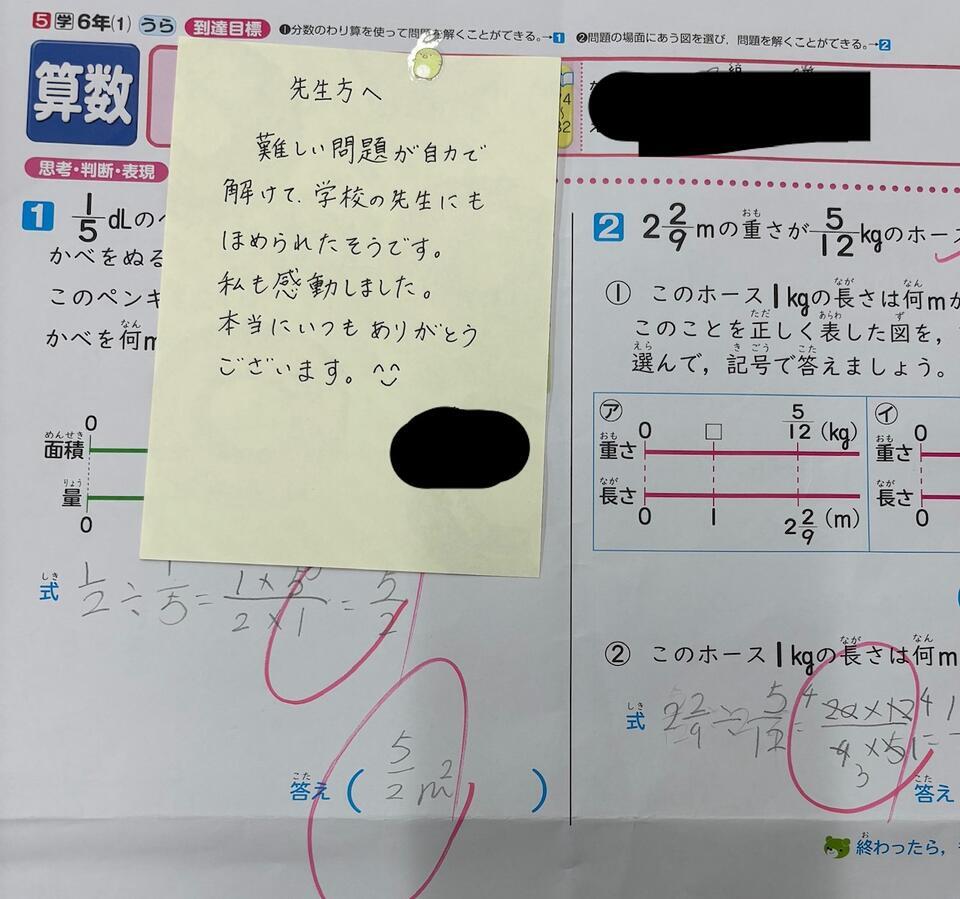 5 学 6年(1) うら 到達目標 ❶分数のわり算を使って問題を解くことができる。→1 ❷問題の場面にあう図を選び，問題を解くことができる。→2
算数
思考・判断・表現
先生方へ
難しい問題が自力で
解けて、学校の先生にも
ほめられたそうです。
私も感動しました。
本当にいつもありがとう
ございます。^^
1 1/5 dLの
かべをぬる
このペンキ
かべを何m
0
面積
量
0
式 1/2÷1/5=1×5/2×1=5/2
答え ( 5/2 m² )
2 2 2/9 mの重さが 5/12 kgのホース
① このホース1kgの長さは何mか
このことを正しく表した図を，
選んで，記号で答えましょう。
ア 0 □ 5/12 (kg)
重さ
長さ
0 1 2 2/9 (m)
イ 0
重さ
長さ
0
② このホース1kgの長さは何m
式 2 2/9÷5/12=
答え
終わったら，